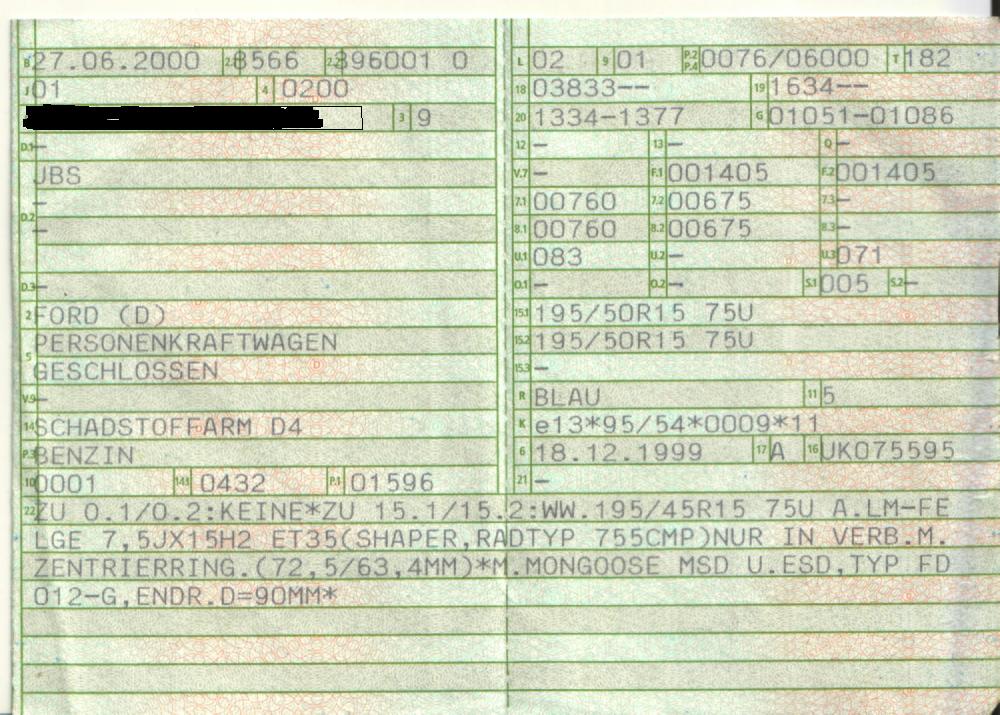 B 27.06.2000 2.1 8566 2.2 396001 0
J 01 4 0200
3 9
D.1 –
JBS
D.2 –
D.3 –
2 FORD (D)
PERSONENKRAFTWAGEN
5 GESCHLOSSEN
V.9 –
14 SCHADSTOFFARM D4
P.3 BENZIN
10 0001 14.1 0432 P.1 01596
L 02 9 01 P.2 P.4 0076/06000 T 182
18 03833-- 19 1634--
20 1334-1377 G 01051-01086
12 – 13 – Q –
V.7 – F.1 001405 F.2 001405
7.1 00760 7.2 00675 7.3 –
8.1 00760 8.2 00675 8.3 –
U.1 083 U.2 – U.3 071
O.1 – O.2 – S.1 005 S.2 –
15.1 195/50R15 75U
15.2 195/50R15 75U
15.3 –
R BLAU 11 5
K e13*95/54*0009*11
6 18.12.1999 17 A 16 UK075595
21 –
22 ZU O.1/O.2:KEINE*ZU 15.1/15.2:WW.195/45R15 75U A.LM-FE
LGE 7,5JX15H2 ET35(SHAPER,RADTYP 755CMP)NUR IN VERB.M.
ZENTRIERRING.(72,5/63,4MM)*M.MONGOOSE MSD U.ESD,TYP FD
012-G,ENDR.D=90MM*